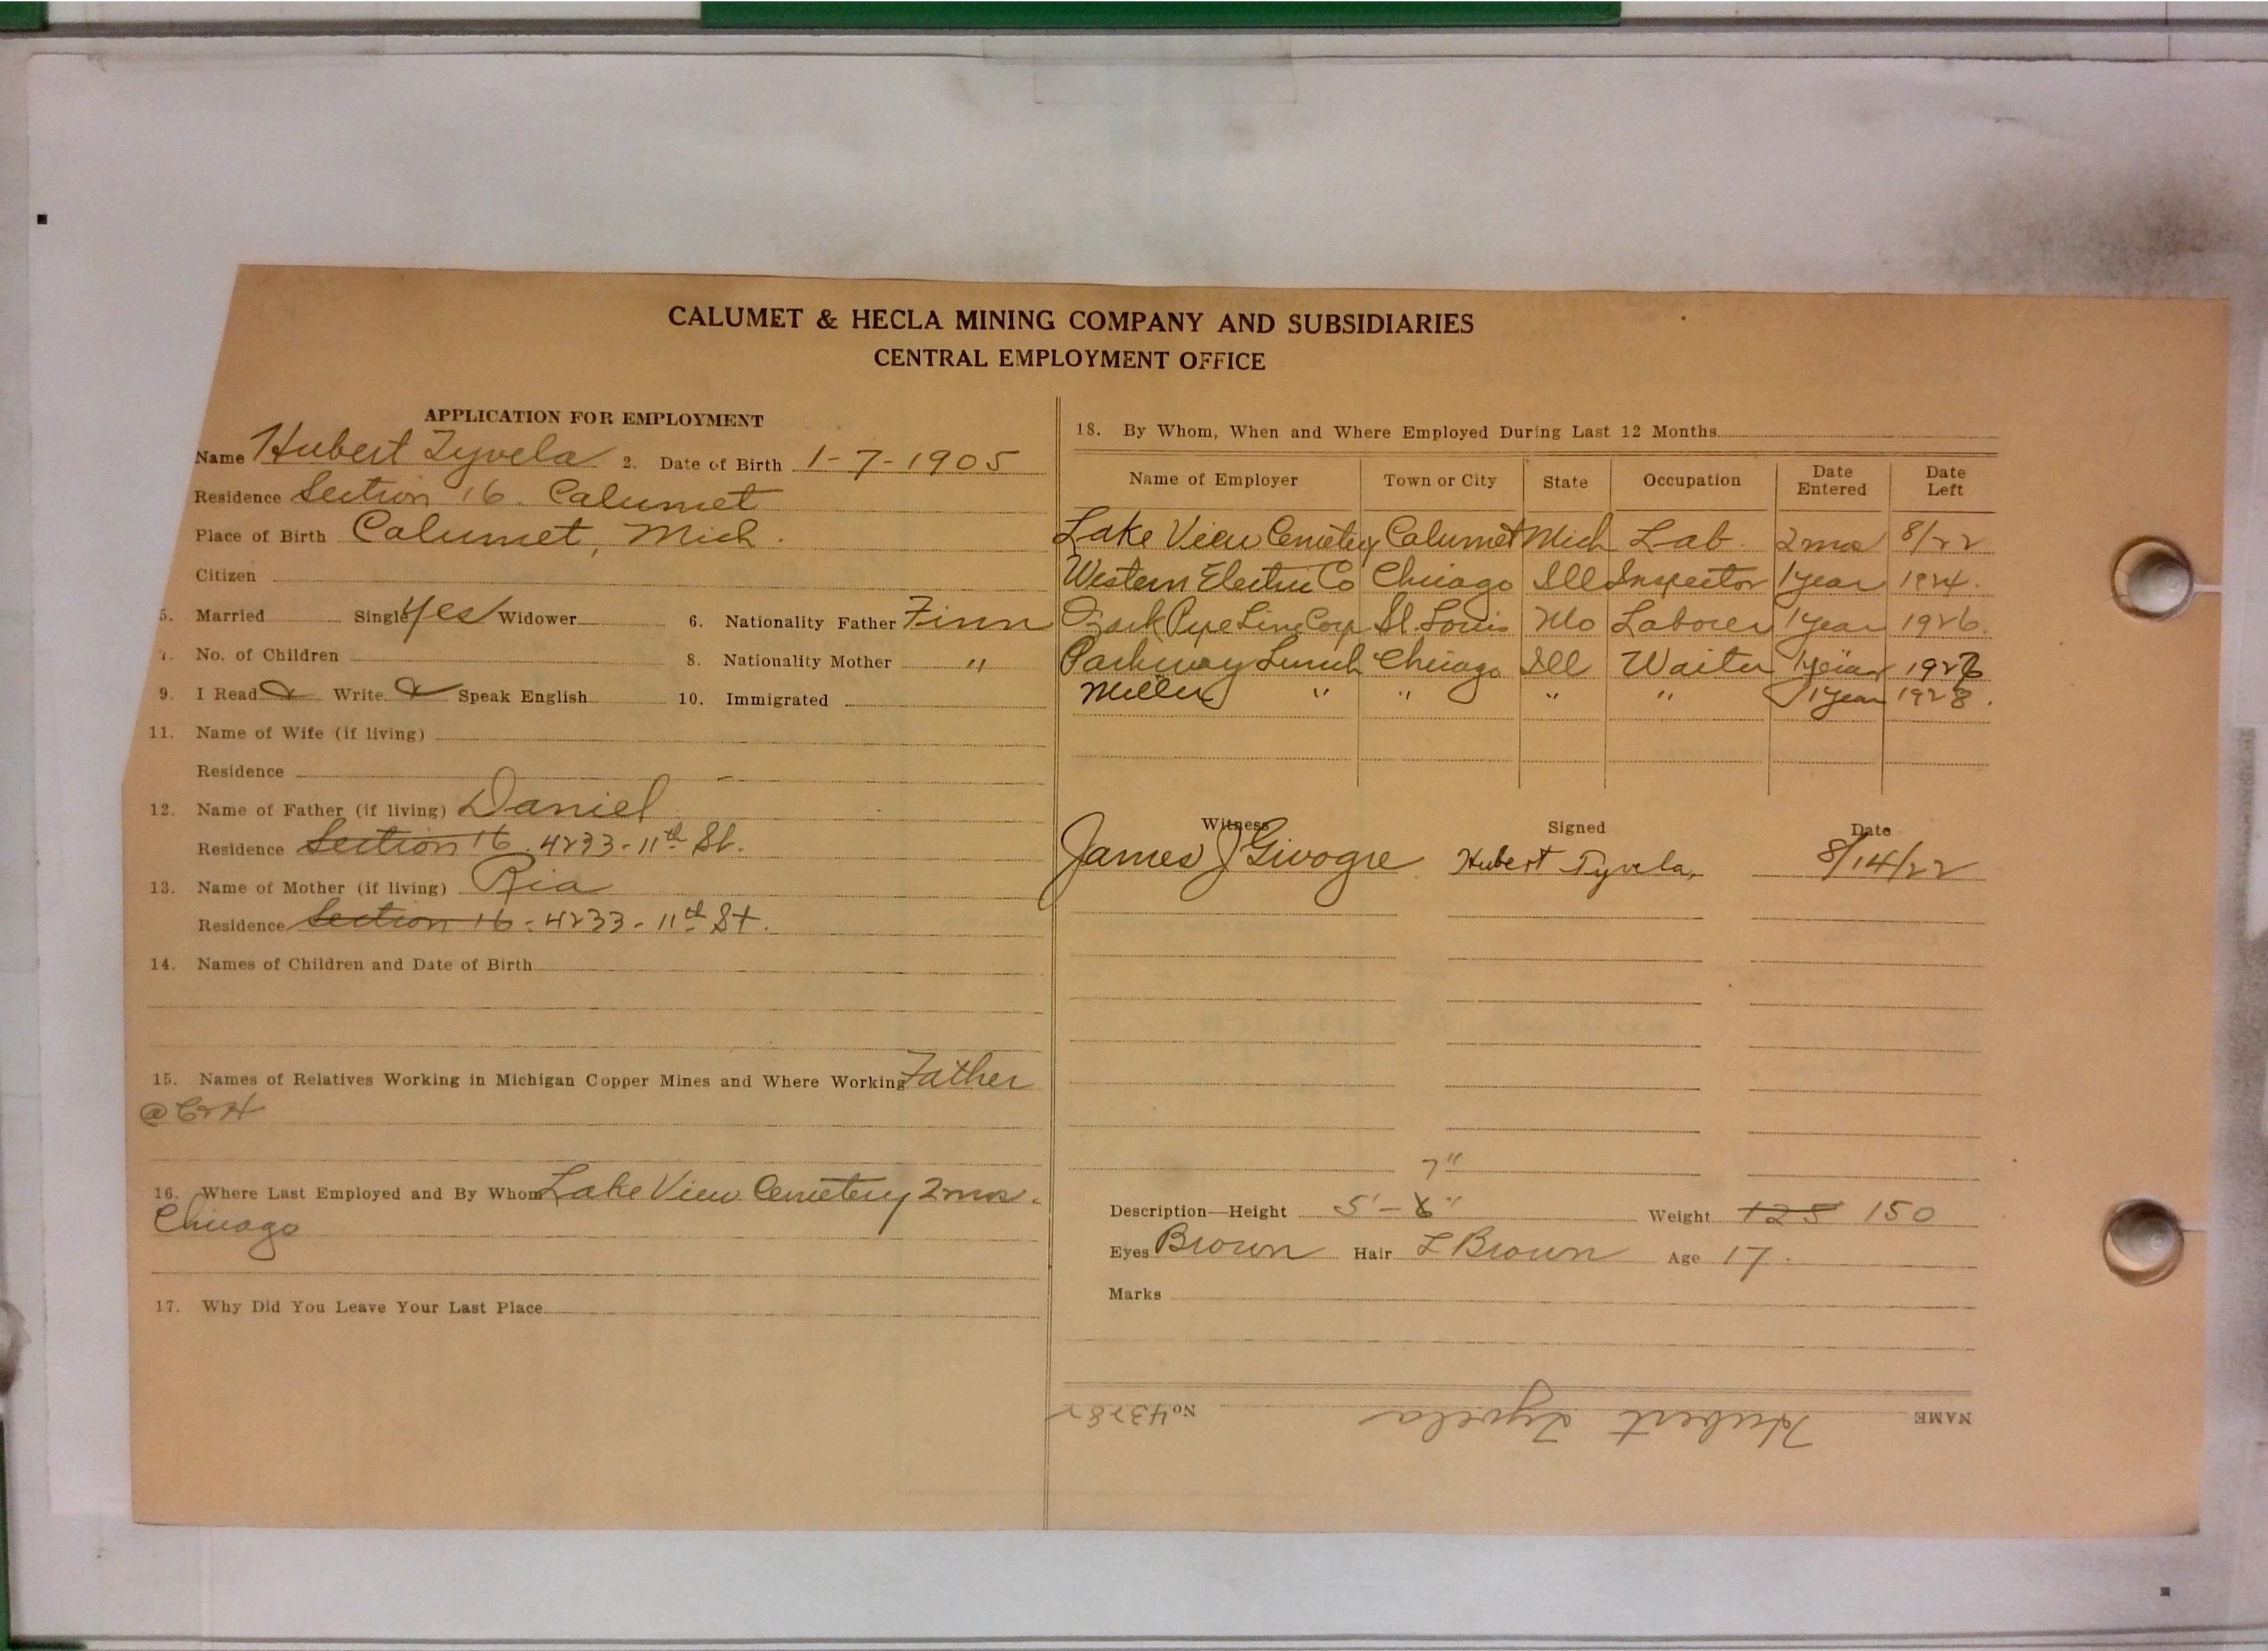 CALUMET & HECLA MINING COMPANY AND SUBSIDIARIES
CENTRAL EMPLOYMENT OFFICE
APPLICATION FOR EMPLOYMENT
Name Hubert Tyvela 2. Date of Birth 1-7-1905
Residence Section 16. Calumet
Place of Birth Calumet, Mich.
Citizen
5. Married Single Yes Widower 6. Nationality Father Finn
7. No. of Children 8. Nationality Mother "
9. I Read Write Speak English 10. Immigrated
11. Name of Wife (if living)
Residence -
12. Name of Father (if living) Daniel
Residence Section 16. 4233-11th St.
13. Name of Mother (if living) Ria
Residence Section 16-4233-11th St.
14. Names of Children and Date of Birth
15. Names of Relatives Working in Michigan Copper Mines and Where Working Father
@ C&H
16. Where Last Employed and By Whom Lake View Cemetery 2 mos.
Chicago
17. Why Did You Leave Your Last Place
18. By Whom, When and Where Employed During Last 12 Months
Name of Employer Town or City State Occupation Date Entered Date Left
Lake View Cemetery Calumet Mich Lab. 2 mos 8/22
Western Electric Co Chicago Ill Inspector 1 year 1924.
Ozark Pipe Line Corp St. Louis Mo Laborer 1 year 1926.
Parkway Lunch Chicago Ill Waiter 1 year 1927
Miller " " " " 1 year 1928.
Witness Signed Date
James J Hubert Tyvela, 8/14/22
7"
Description—Height 5'-6" Weight 125 150
Eyes Brown Hair L Brown Age 17.
Marks
NAME Hubert Tyvela No. 43282